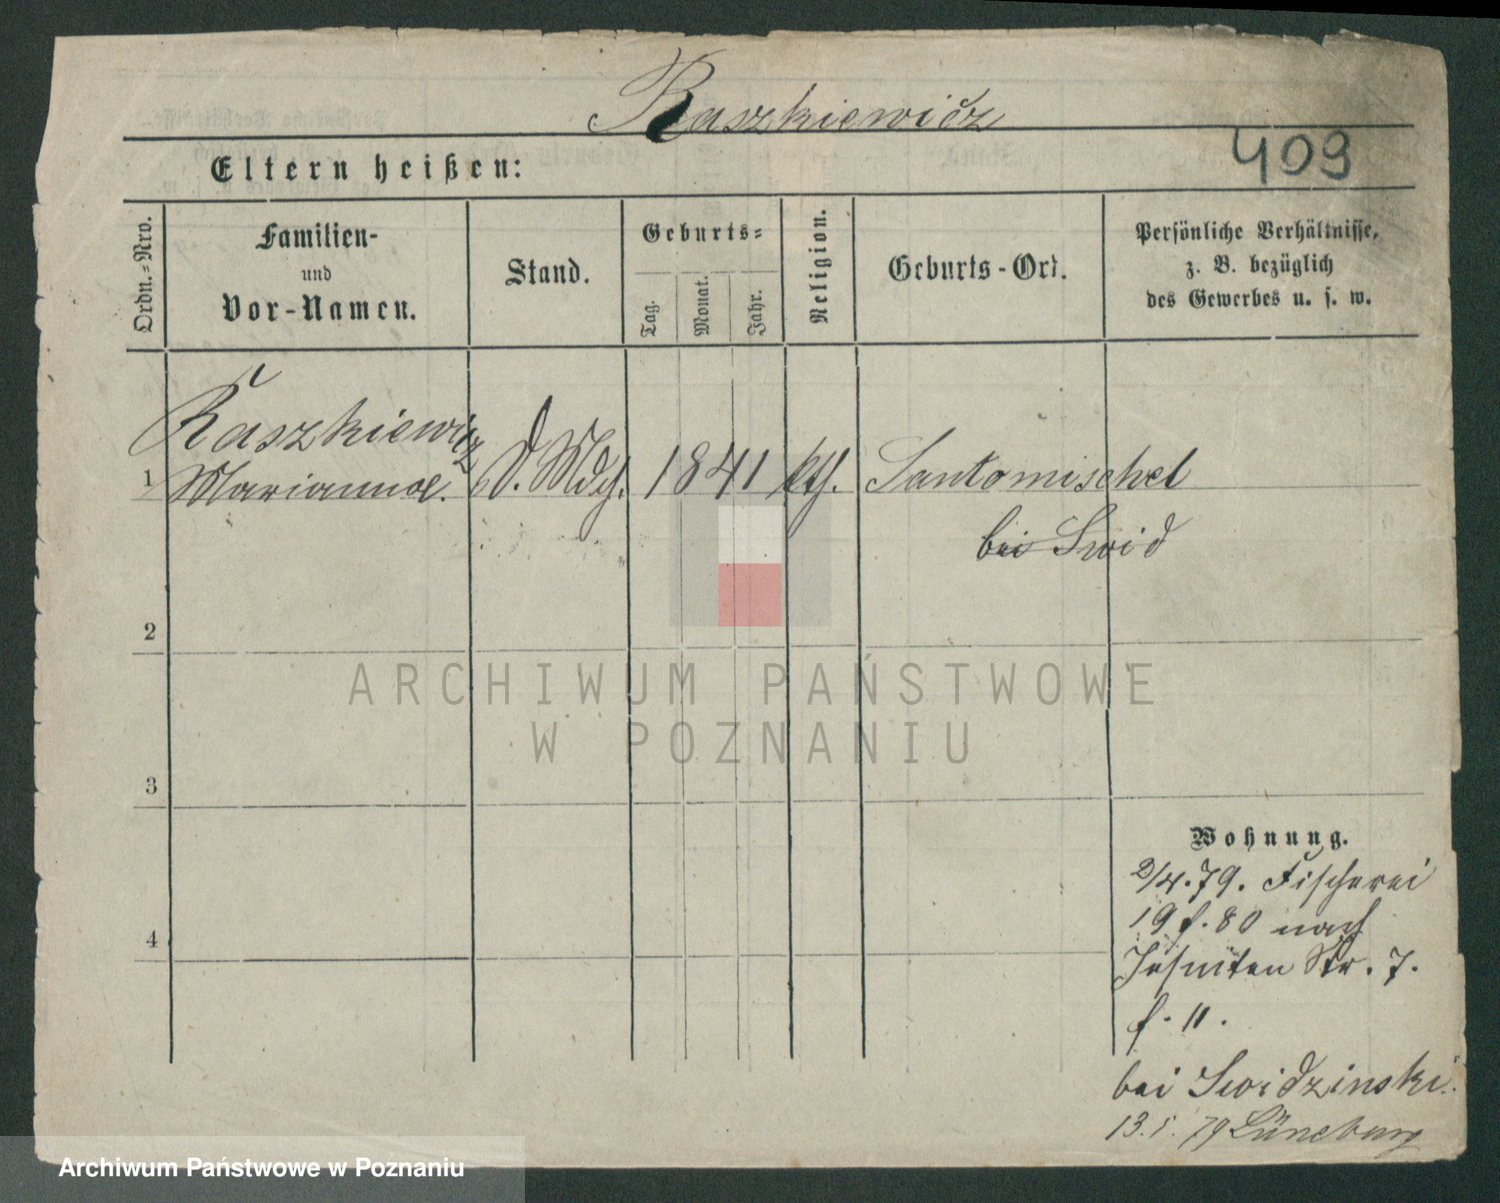 Raszkiewicz
409
Eltern heißen:
Ordn.-Nro.
Familien-
und
Vor-Namen.
Stand.
Geburts-
Tag.
Monat.
Jahr.
Religion.
Geburts-Ort.
Persönliche Verhältnisse,
z. B. bezüglich
des Gewerbes u. s. w.
Raszkiewicz
1 Marianna. D. Mdch. 1841 kth. Santomischel
bei Swid
2
ARCHIWUM PAŃSTWOWE
W POZNANIU
3
Wohnung.
2/4.79. Fischerei
19 f. 80 nach
4
Jesuiten Str. 7.
f. 11.
bei Swidzinski.
13.5. 79 Lüneburg
Archiwum Państwowe w Poznaniu